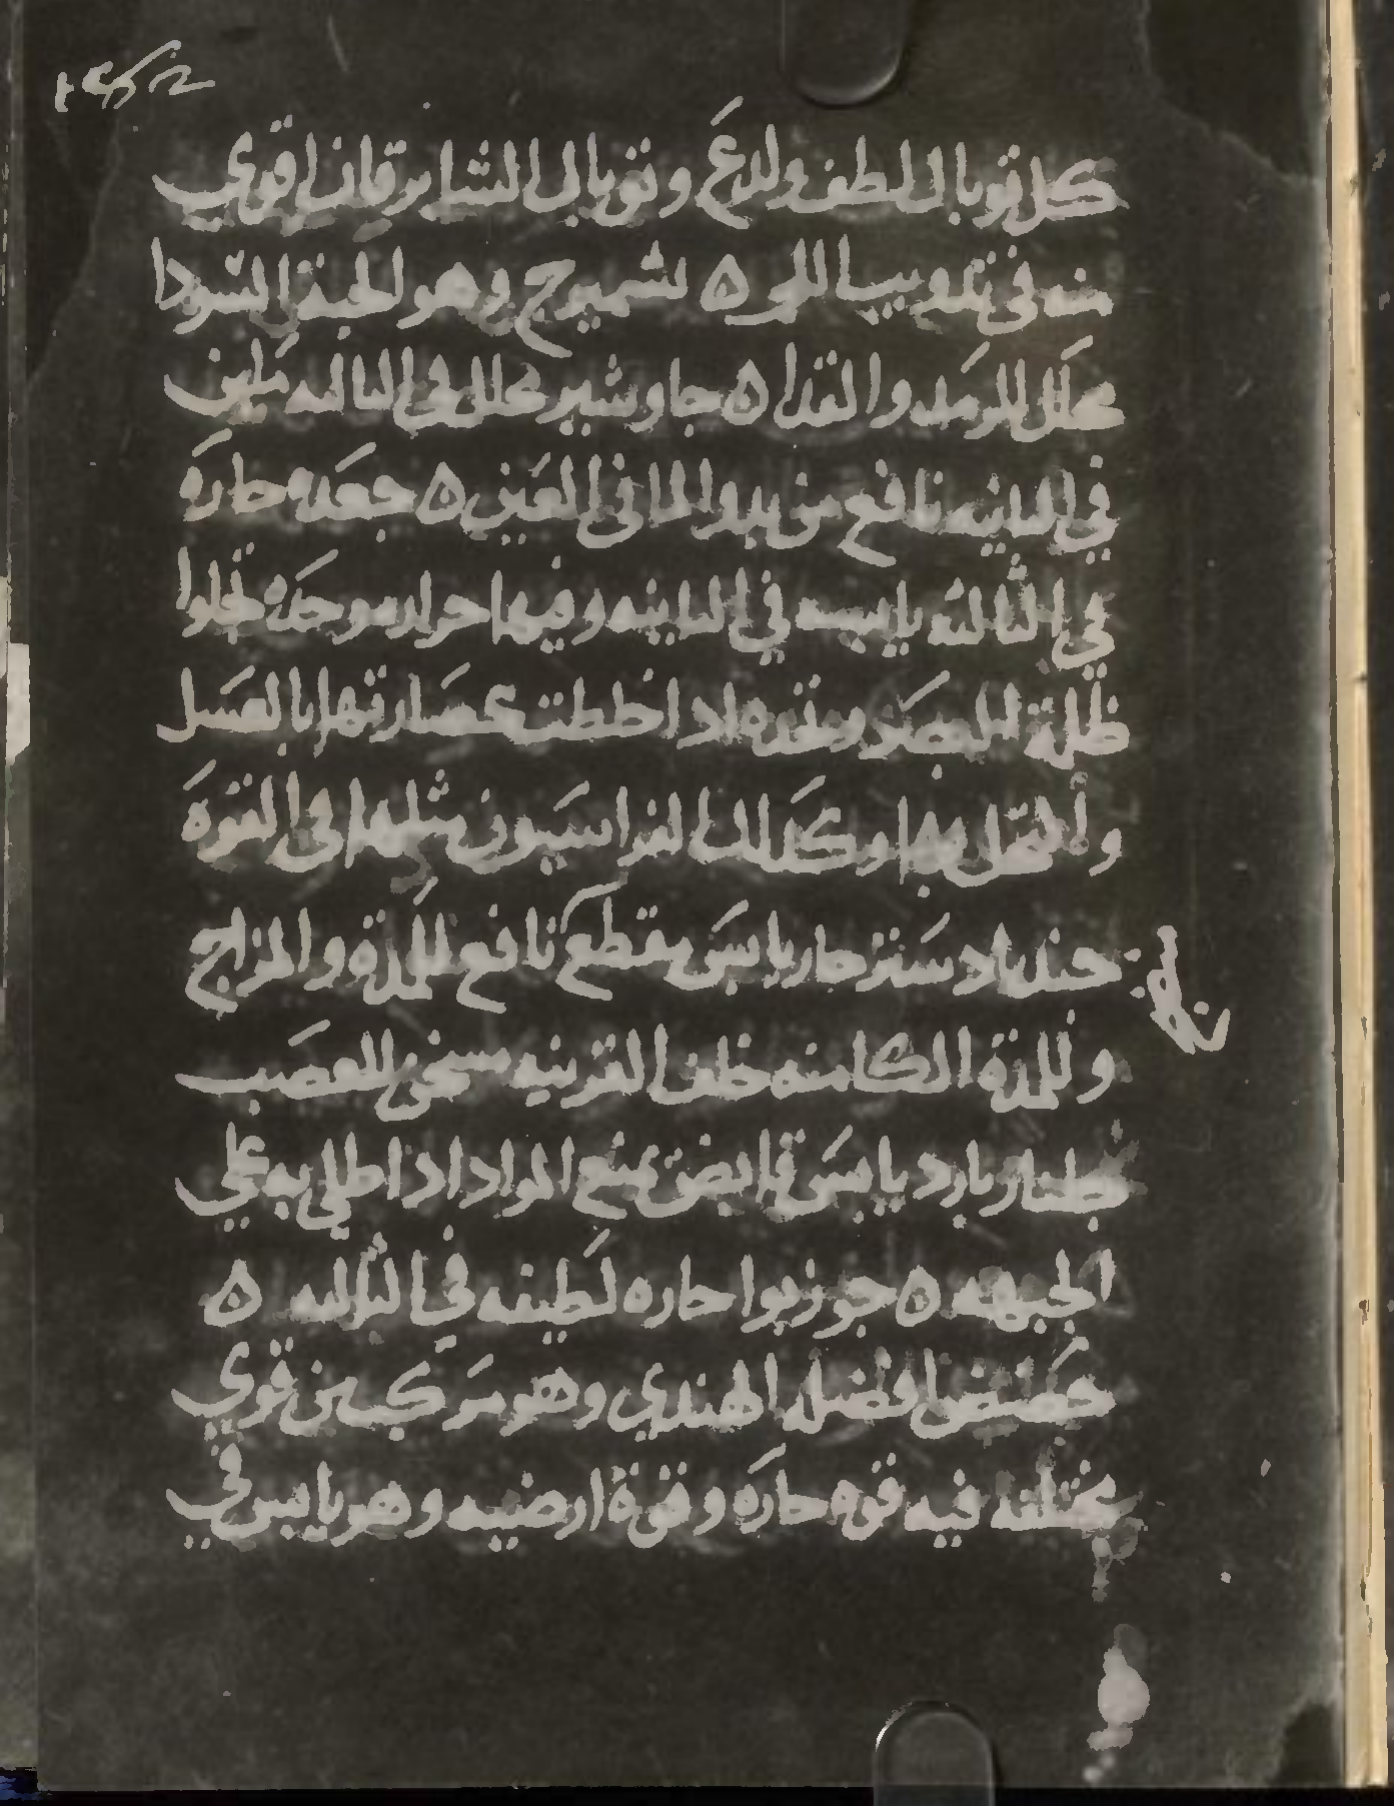 كل توبال لطف ولدع وتوبال الشابرقان اقوي
منه في تدويب اللحم ه تشميزج وهو الحبة السودا
محلل للرمد والقذا ه جاوشير محلل في الثالثه ملين
في الثانيه نافع من بدو الما في العين ه جعده حاره
في الثالثه يابسه في الثانيه وفيها حراره وحده تجلوا
ظلمة البصر وتحده اذا خلطت عصارتها بالعسل
واكتحل بها وكذلك الفراسيون مثلها في القوة
جندبادستر حار يابس مقطع نافع للمدة والمزاج
وللمدة الكامنه خلف القرنيه مسخن للعصب
جلنار بارد يابس قابض يمنع المواد اذا طلي به علي
الجبهه ه جوزبوا حاره لطيفه في الثالثه ه
حضض افضله الهندي وهو مركب من قوي
مختلفه فيه قوه حاره وقوة ارضيه وهو يابس في